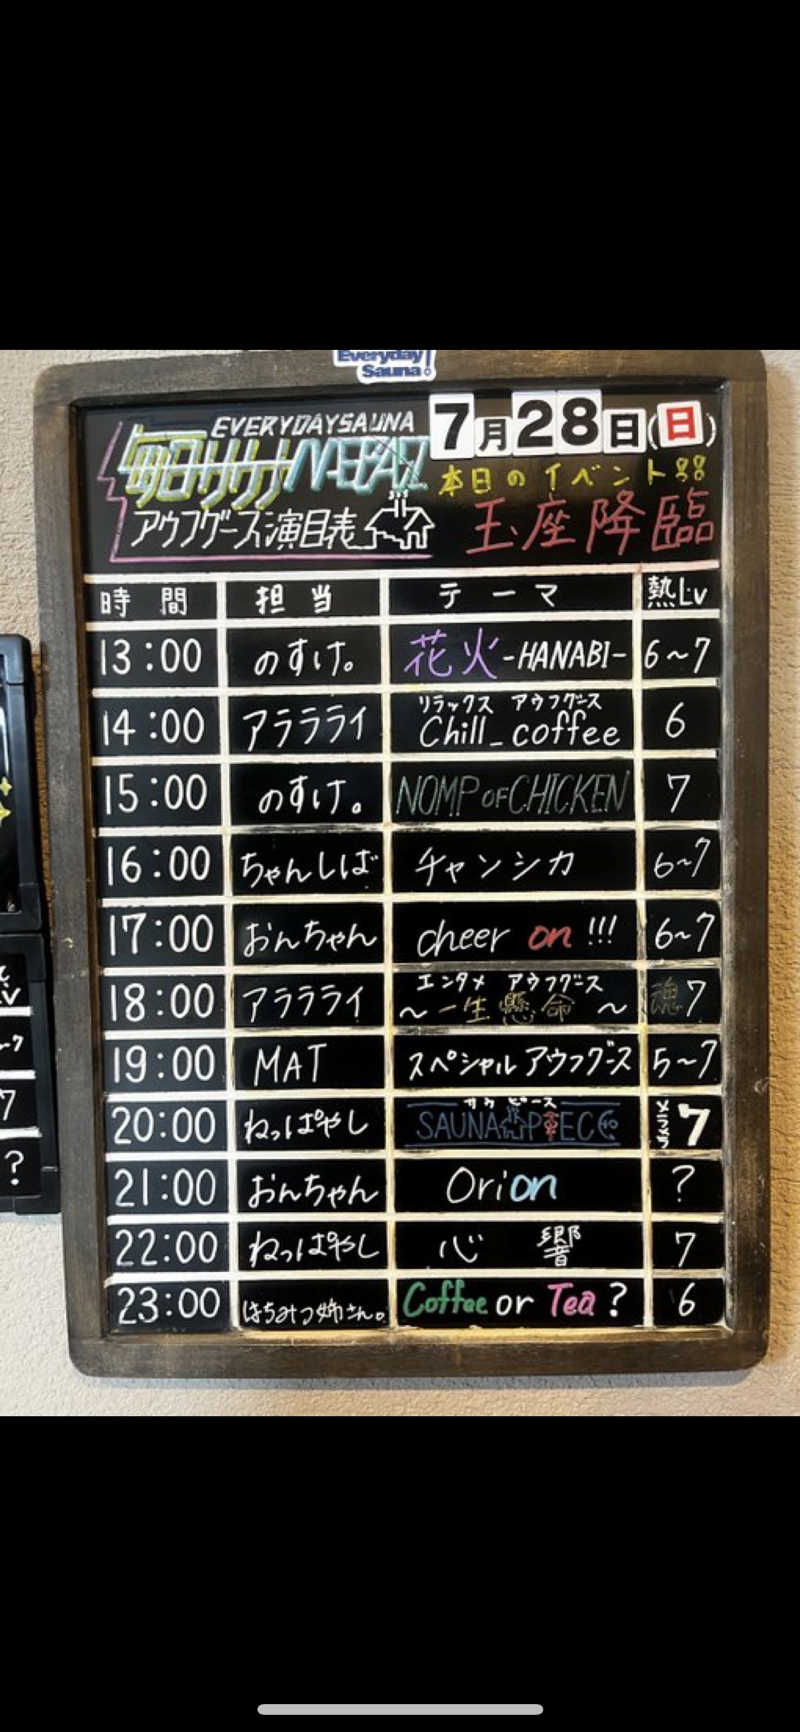 Everyday
Sauna!
EVERYDAYSAUNA
毎日サウナ MAEBASHI
アウフグース演目表
7月28日(日)
本日のイベント
玉座降臨
時間 担当 テーマ 熱Lv
13:00 のすけ。 花火-HANABI- 6~7
リラックス アウフグース
14:00 アララライ Chill_coffee 6
15:00 のすけ。 NOMP OF CHICKEN 7
16:00 ちゃんしば チャンシカ 6~7
17:00 おんちゃん cheer on !!! 6~7
エンタメ アウフグース
18:00 アララライ ~一生懸命~ 魂7
19:00 MAT スペシャルアウフグース 5~7
サウ ピース
20:00 ねっぱやし SAUNA PIECE 7
21:00 おんちゃん Orion ?
22:00 ねっぱやし 心響 7
23:00 はちみつ姉さん。 Coffee or Tea? 6
7
?